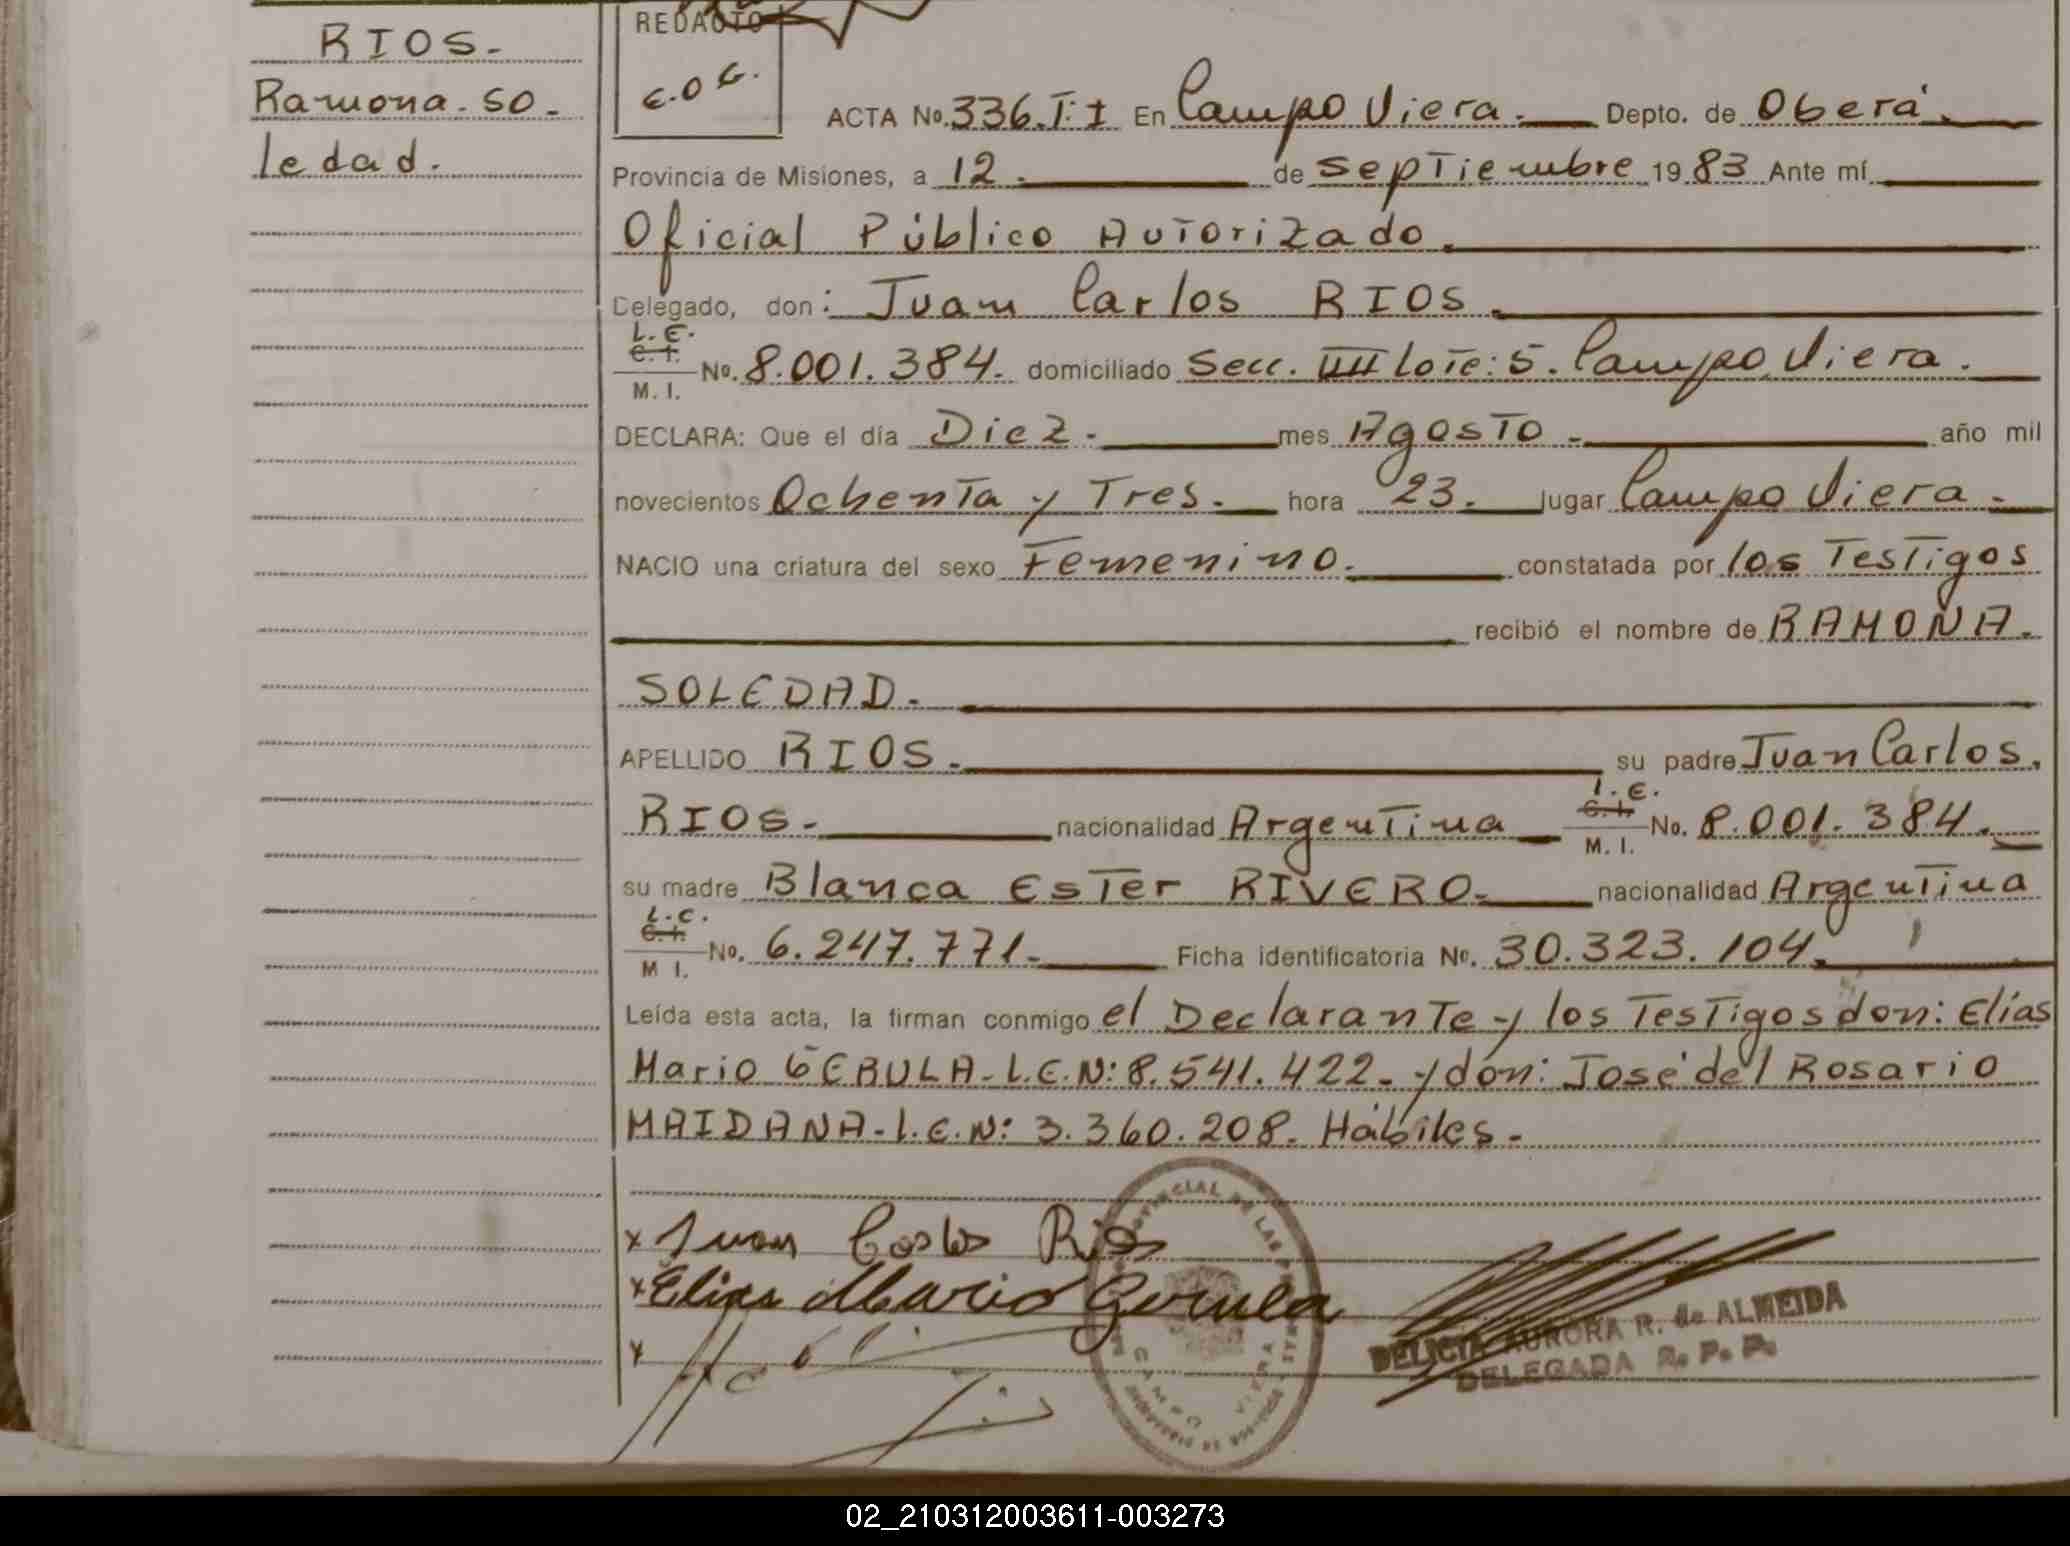 RIOS.
Ramona. SO.
ledad.
REDACTO
E.O G.
ACTA No. 336. T: I En Campo Viera. Depto. de Oberá.
Provincia de Misiones, a 12. de septiembre 1983 Ante mí
Oficial Público Autorizado.
Delegado, don: Juan Carlos RIOS.
L.E.
C. I.
M. I.
No. 8.001.384. domiciliado Secc. IIII lote: 5. Campo Viera.
DECLARA: Que el día Diez. mes Agosto. año mil
novecientos Ochenta y Tres. hora 23. lugar Campo Viera.
NACIO una criatura del sexo Femenino. constatada por los Testigos
recibió el nombre de RAMONA.
SOLEDAD.
APELLIDO RIOS. su padre Juan Carlos.
RIOS. nacionalidad Argentina
L.E.
C. I.
M. I.
No. 8.001.384.
su madre Blanca Ester RIVERO. nacionalidad Argentina
L.C.
C. I.
M I.
No. 6.247.771. Ficha identificatoria No. 30.323.104.
Leída esta acta, la firman conmigo el Declarante y los Testigos don: Elías
Mario GERULA - L.E.N: 8.541.422. y don: José del Rosario
MAIDANA - L.E.N: 3.360.208. Hábiles.
x Juan Carlos Rios
x Elias Mario Gerula
x
CAMPO VIERA
DELICIA AURORA R. de ALMEIDA
DELEGADA R. P. P.
02_210312003611-003273